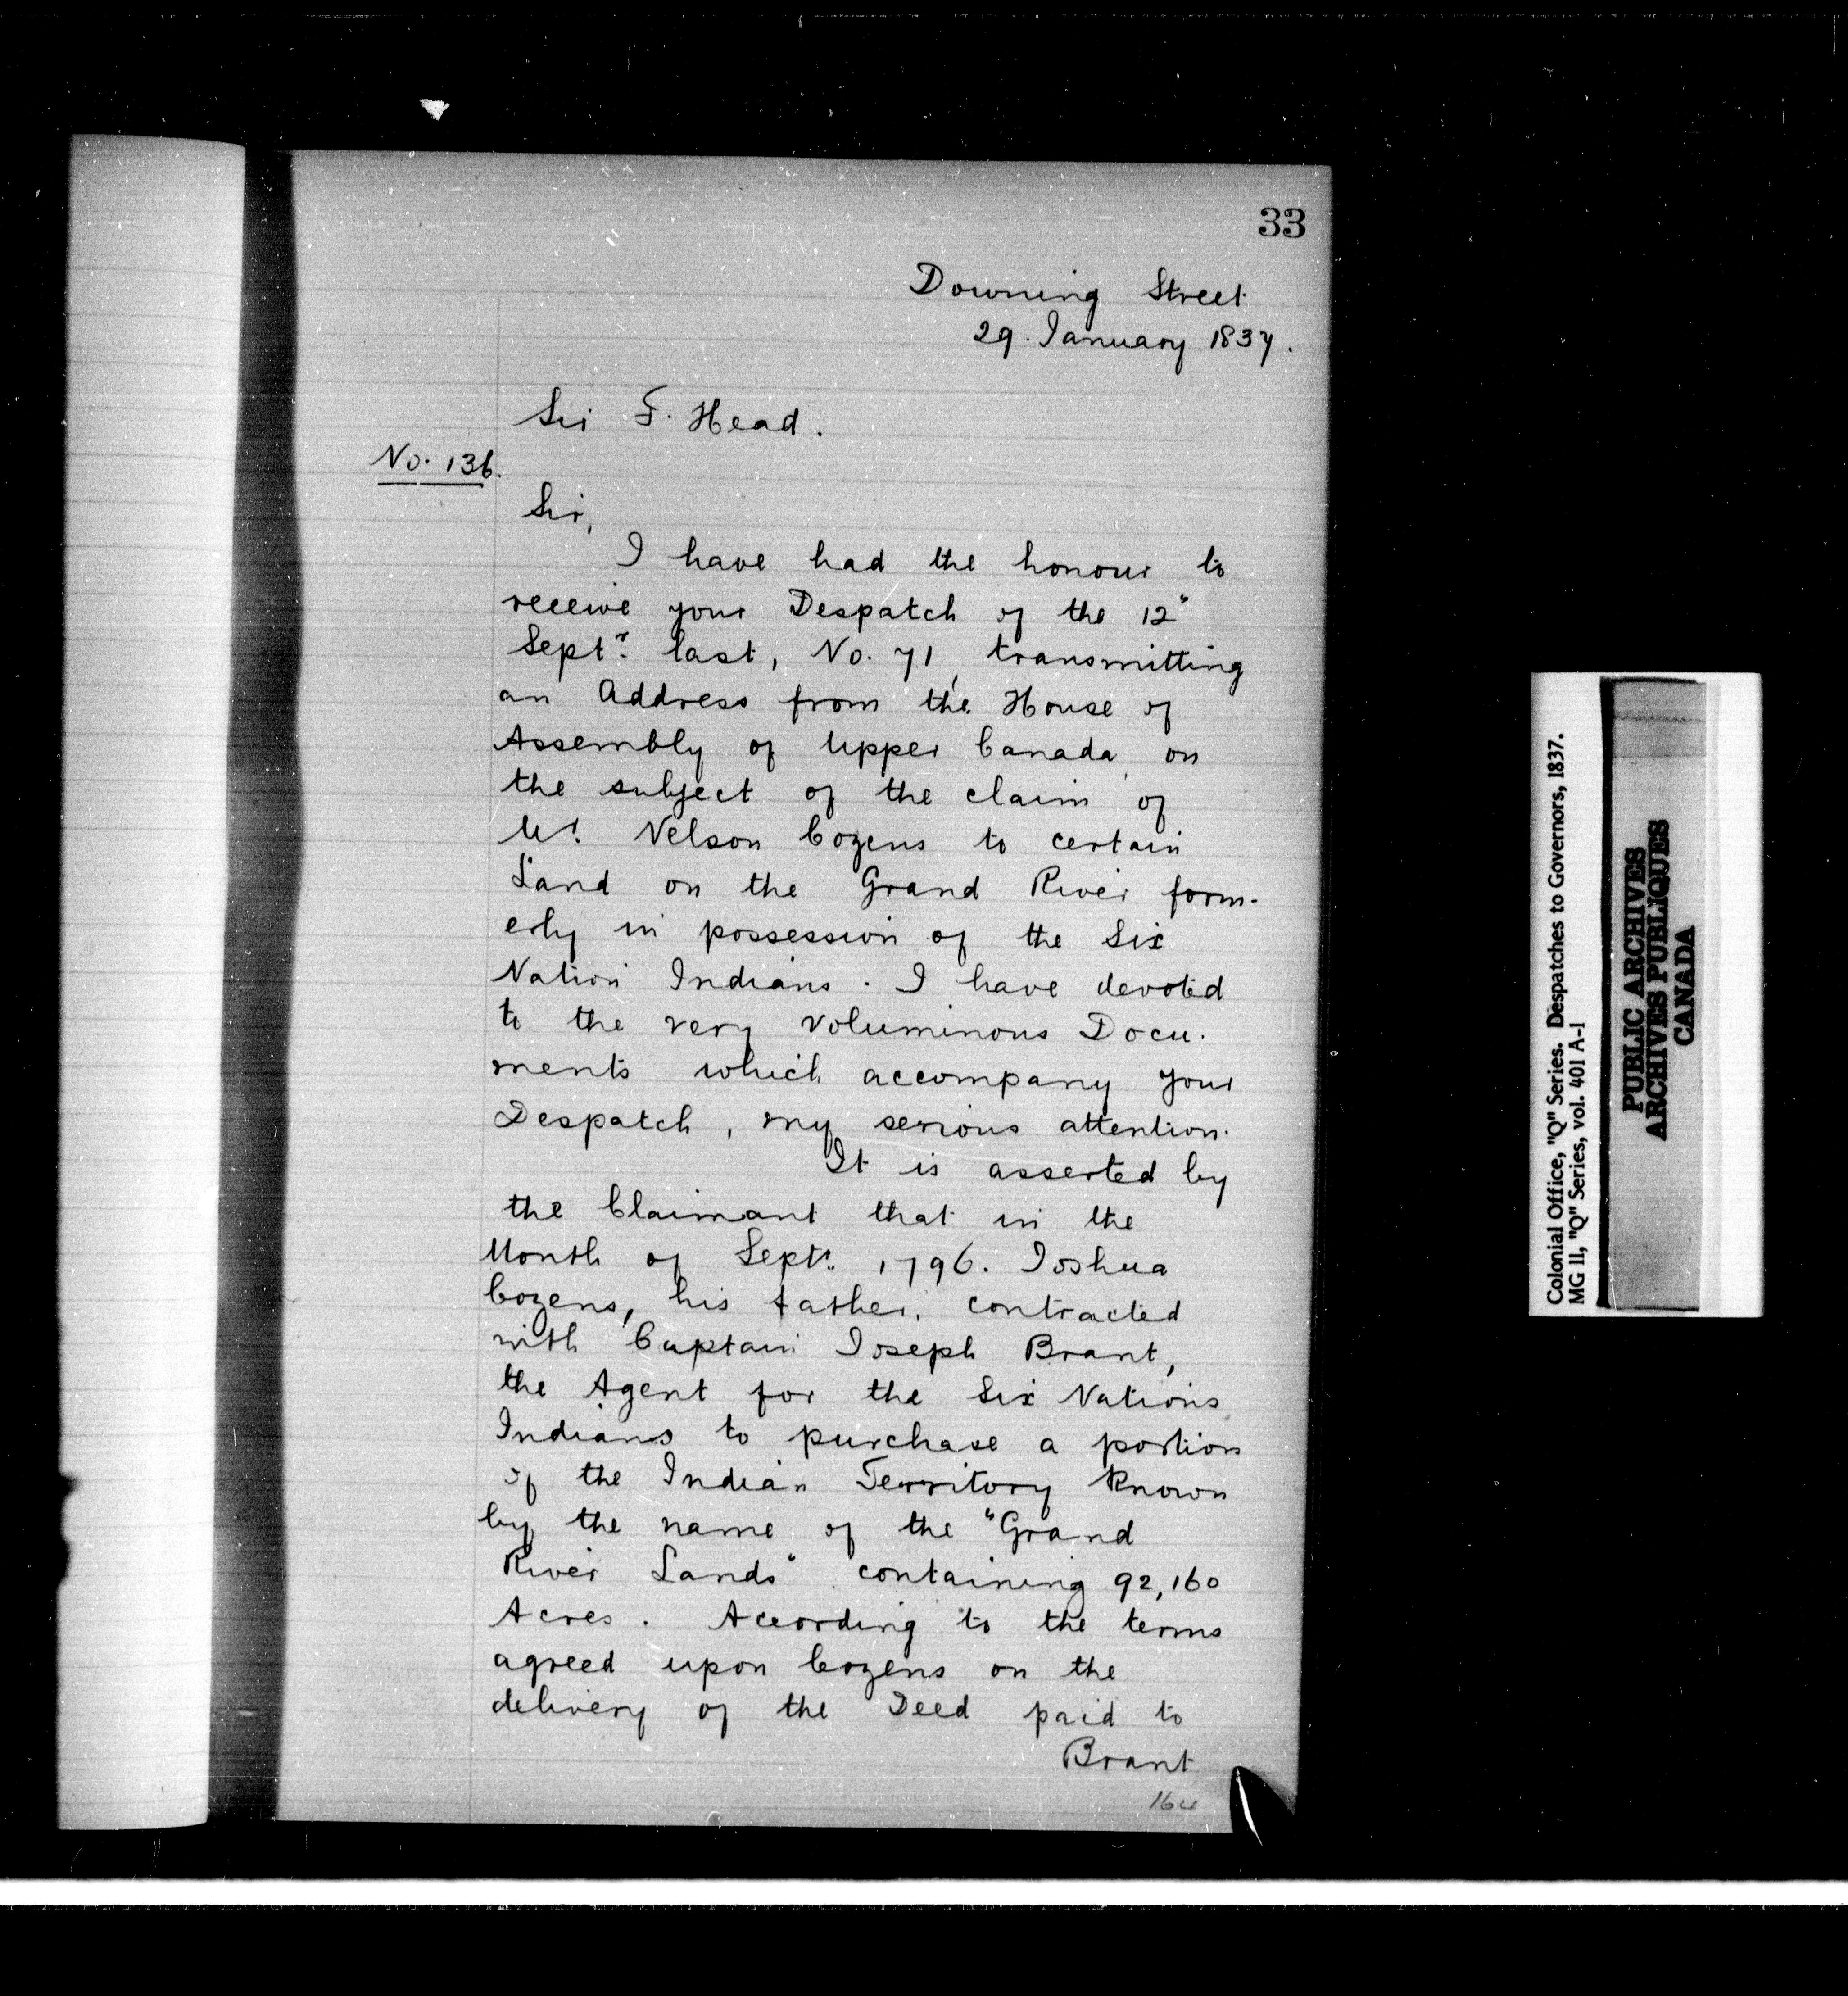 33
Downing Street
29. January 1837.
Sir F. Head.
No. 136.
Sir,
I have had the honour to
receive your Despatch of the 12"
Septr. last, No. 71, transmitting
an Address from the House of
Assembly of Upper Canada, on
the subject of the claim of
Mr. Nelson Cozens to certain
Land on the Grand River form-
erly in possession of the Six
Nation Indians. I have devoted
to the very voluminous Docu-
ments which accompany your
Despatch, my serious attention.
It is asserted by
the Claimant that in the
Month of Septr. 1796. Joshua
Cozens, his father, contracted
with Captain Joseph Brant,
the Agent for the Six Nations
Indians to purchase a portion
of the Indian Territory known
by the name of the "Grand
River Lands" containing 92,160
Acres. According to the terms
agreed upon Cozens on the
delivery of the Deed paid to
Brant
Colonial Office, "Q" Series. Despatches to Governors, 1837.
MG 11, "Q" Series, vol. 401 A-1
PUBLIC ARCHIVES
ARCHIVES PUBLIQUES
CANADA